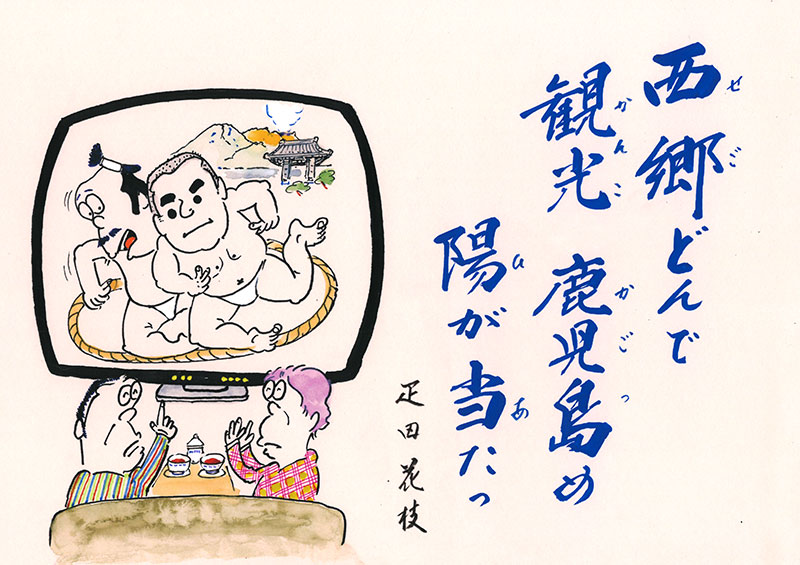 西郷どんで
せご
観光 鹿児島め
かんこ かごっ
陽が当たっ
ひ あ
疋田花枝